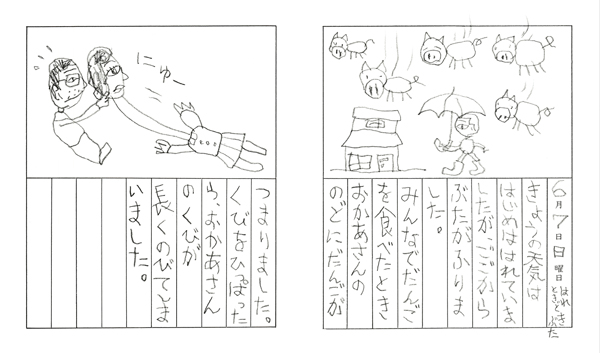 6月7日日曜日 はれときどきぶた
きょうの天気は
はじめははれていま
したが、ごごから
ぶたがふりま
した。
みんなでだんご
を食べたとき
おかあさんの
のどにだんごが
にゅー
つまりました。
くびをひっぱった
ら、おかあさん
のくびが
長くのびてしま
いました。